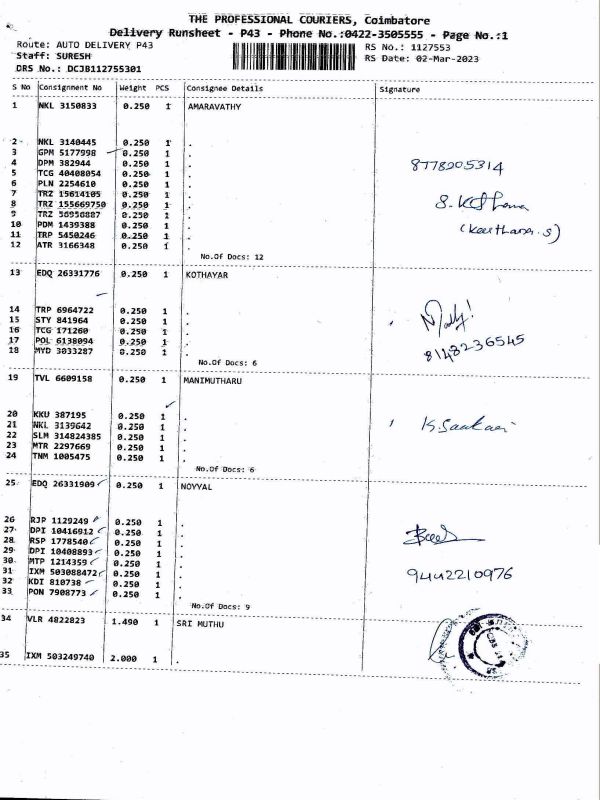 THE PROFESSIONAL COURIERS, Coimbatore
Delivery Runsheet - P43 - Phone No.:0422-3505555 - Page No.:1
Route: AUTO DELIVERY P43 RS No.: 1127553
Staff: SURESH RS Date: 02-Mar-2023
DRS No.: DCJB112755301
S No Consignment No Weight PCS Consignee Details Signature
1 NKL 3150833 0.250 1 AMARAVATHY
2 NKL 3140445 0.250 1 .
3 GPM 5177998 0.250 1 .
4 DPM 382944 0.250 1 . 8778205314
5 TCG 40408054 0.250 1 .
6 PLN 2254610 0.250 1 .
7 TRZ 15614105 0.250 1 .
8 TRZ 155669750 0.250 1 .
9 TRZ 56956887 0.250 1 .
10 PDM 1439388 0.250 1 .
11 TRP 5450246 0.250 1 . (Keerthana.S)
12 ATR 3166348 0.250 1 .
No.Of Docs: 12
13 EDQ 26331776 0.250 1 KOTHAYAR
14 TRP 6964722 0.250 1 .
15 STY 841964 0.250 1 .
16 TCG 171260 0.250 1 .
17 POL 6138094 0.250 1 .
18 MYD 3033287 0.250 1 . 8148236545
No.Of Docs: 6
19 TVL 6609158 0.250 1 MANIMUTHARU
20 KKU 387195 0.250 1 .
21 NKL 3139642 0.250 1 .
22 SLM 314824385 0.250 1 .
23 MTR 2297669 0.250 1 .
24 TNM 1005475 0.250 1 .
No.Of Docs: 6
25 EDQ 26331909 0.250 1 NOYYAL
26 RJP 1129249 0.250 1 .
27 DPI 10416912 0.250 1 .
28 RSP 1778540 0.250 1 .
29 DPI 10408893 0.250 1 .
30 MTP 1214359 0.250 1 . 9442210976
31 IXM 503088472 0.250 1 .
32 KDI 810738 0.250 1 .
33 PON 7908773 0.250 1 .
No.Of Docs: 9
34 VLR 4822823 1.490 1 SRI MUTHU
35 IXM 503249740 2.000 1 .